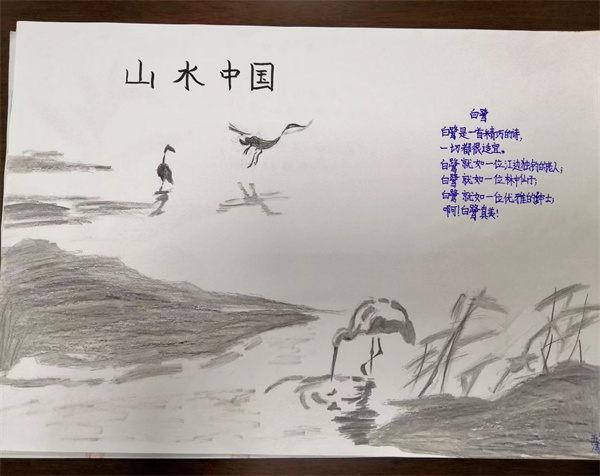 山水中国
白鹭
白鹭是一首精巧的诗,
一切都很适宜。
白鹭就如一位江边独钓的老人;
白鹭就如一位林中仙子;
白鹭就如一位优雅的绅士;
啊!白鹭真美!